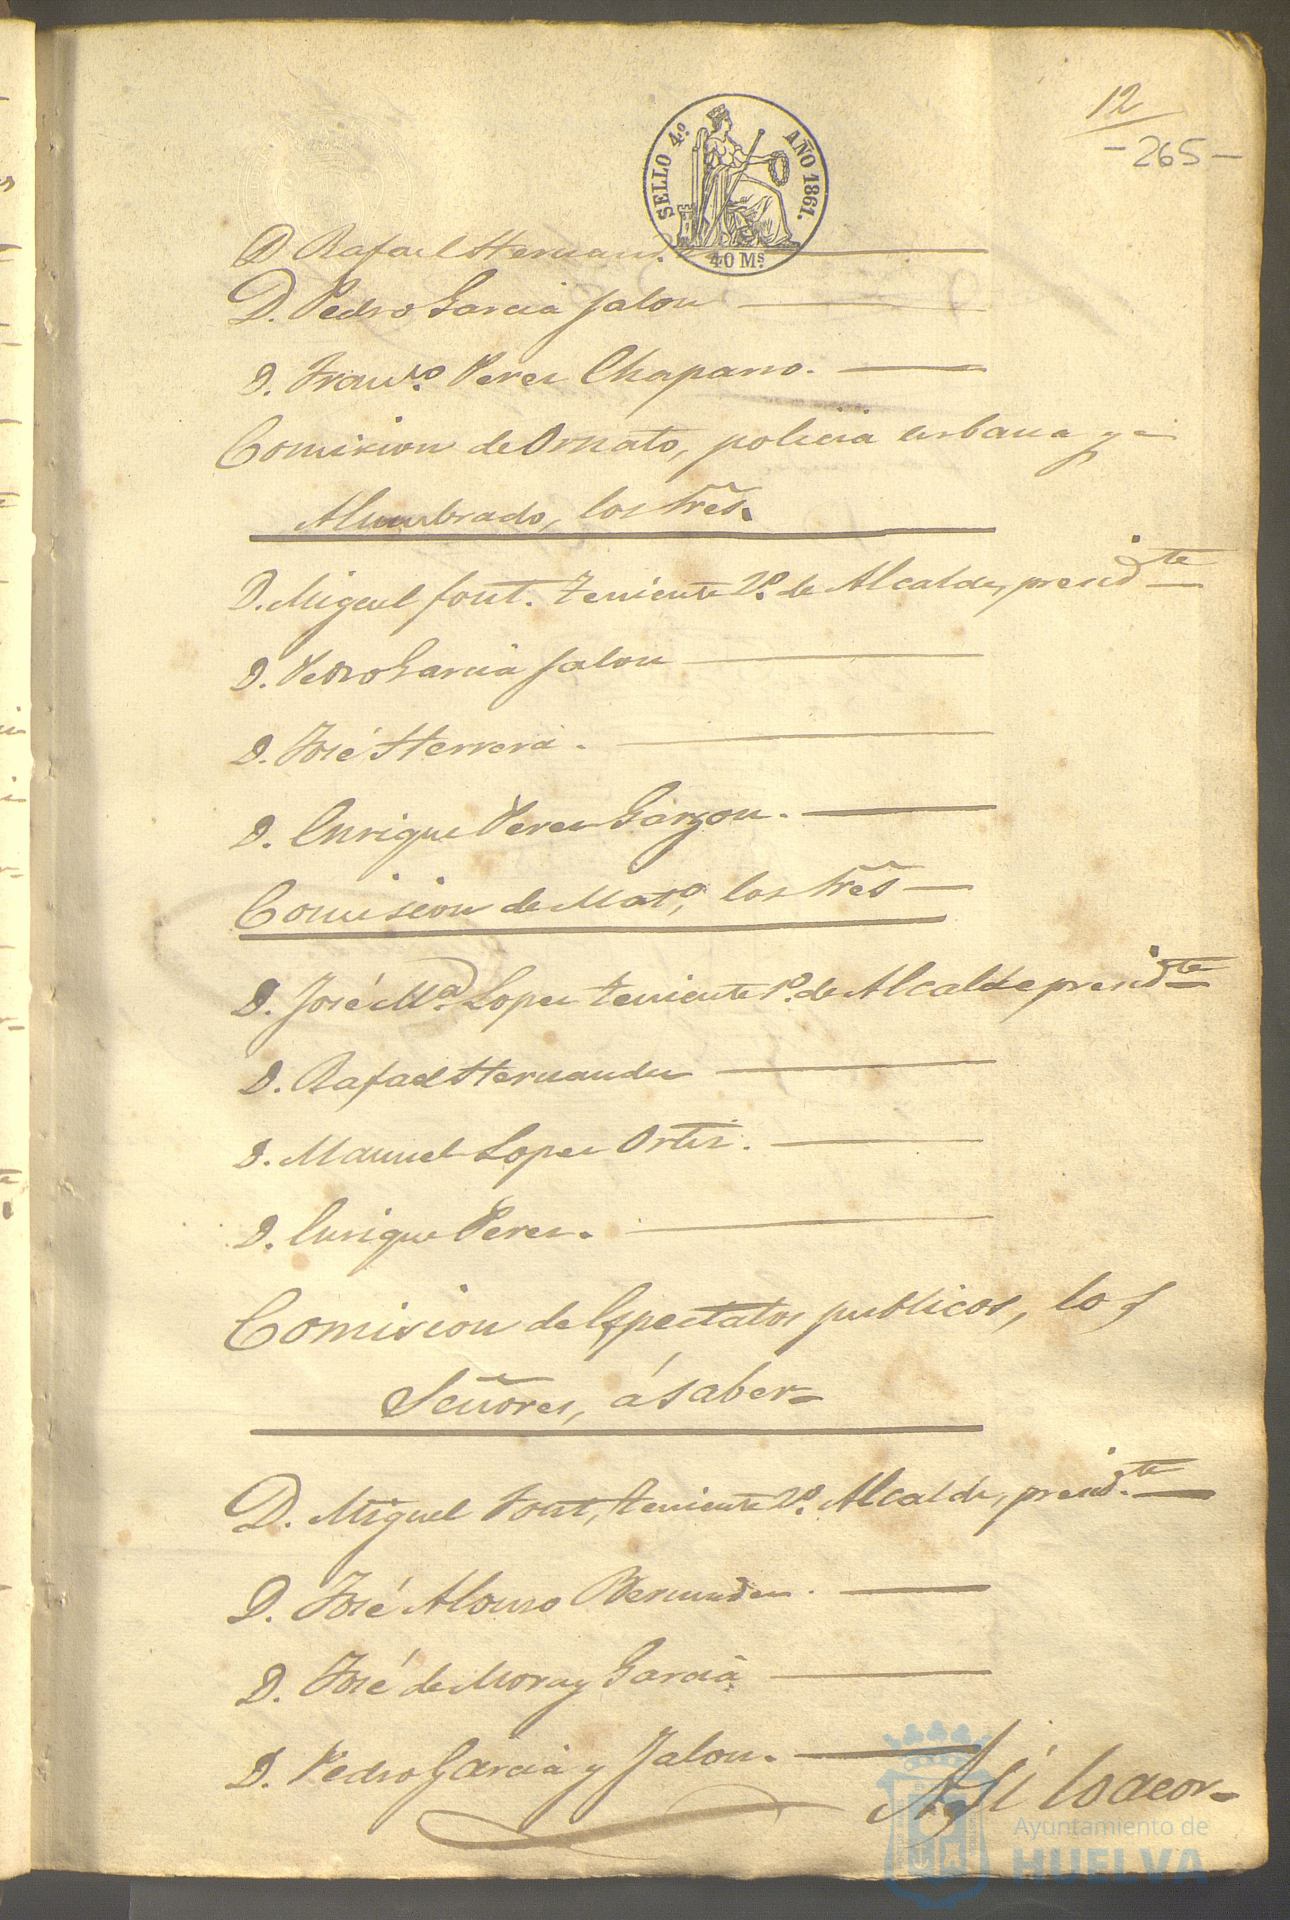 12
-265-
SELLO 4.º AÑO 1861.
40 Ms.
D. Rafael Hernan.
D. Pedro Garcia Jalon
D. Franco. Perez Chaparro.
Comision de Ornato, policia urbana y
Alumbrado, los Sres.
D. Miguel Font. Teniente 2º. de Alcalde, presidte
D. Pedro Garcia Jalon
D. José Herrera.
D. Enrique Perez Garzon.
Comision de Matº, los Sres
D. José Mª. Lopez teniente 1º. de Alcalde presidte
D. Rafael Hernandez
D. Manuel Lopez Ortiz.
D. Enrique Perez.
Comision de Espectalos publicos, los
Señores, á saber
D. Miguel Font, teniente 2º. Alcalde, presidte
D. José Alonso Bermudez.
D. José de Mora y Garcia
D. Pedro Garcia y Jalon.
Así lo acor-
Ayuntamiento de
HUELVA